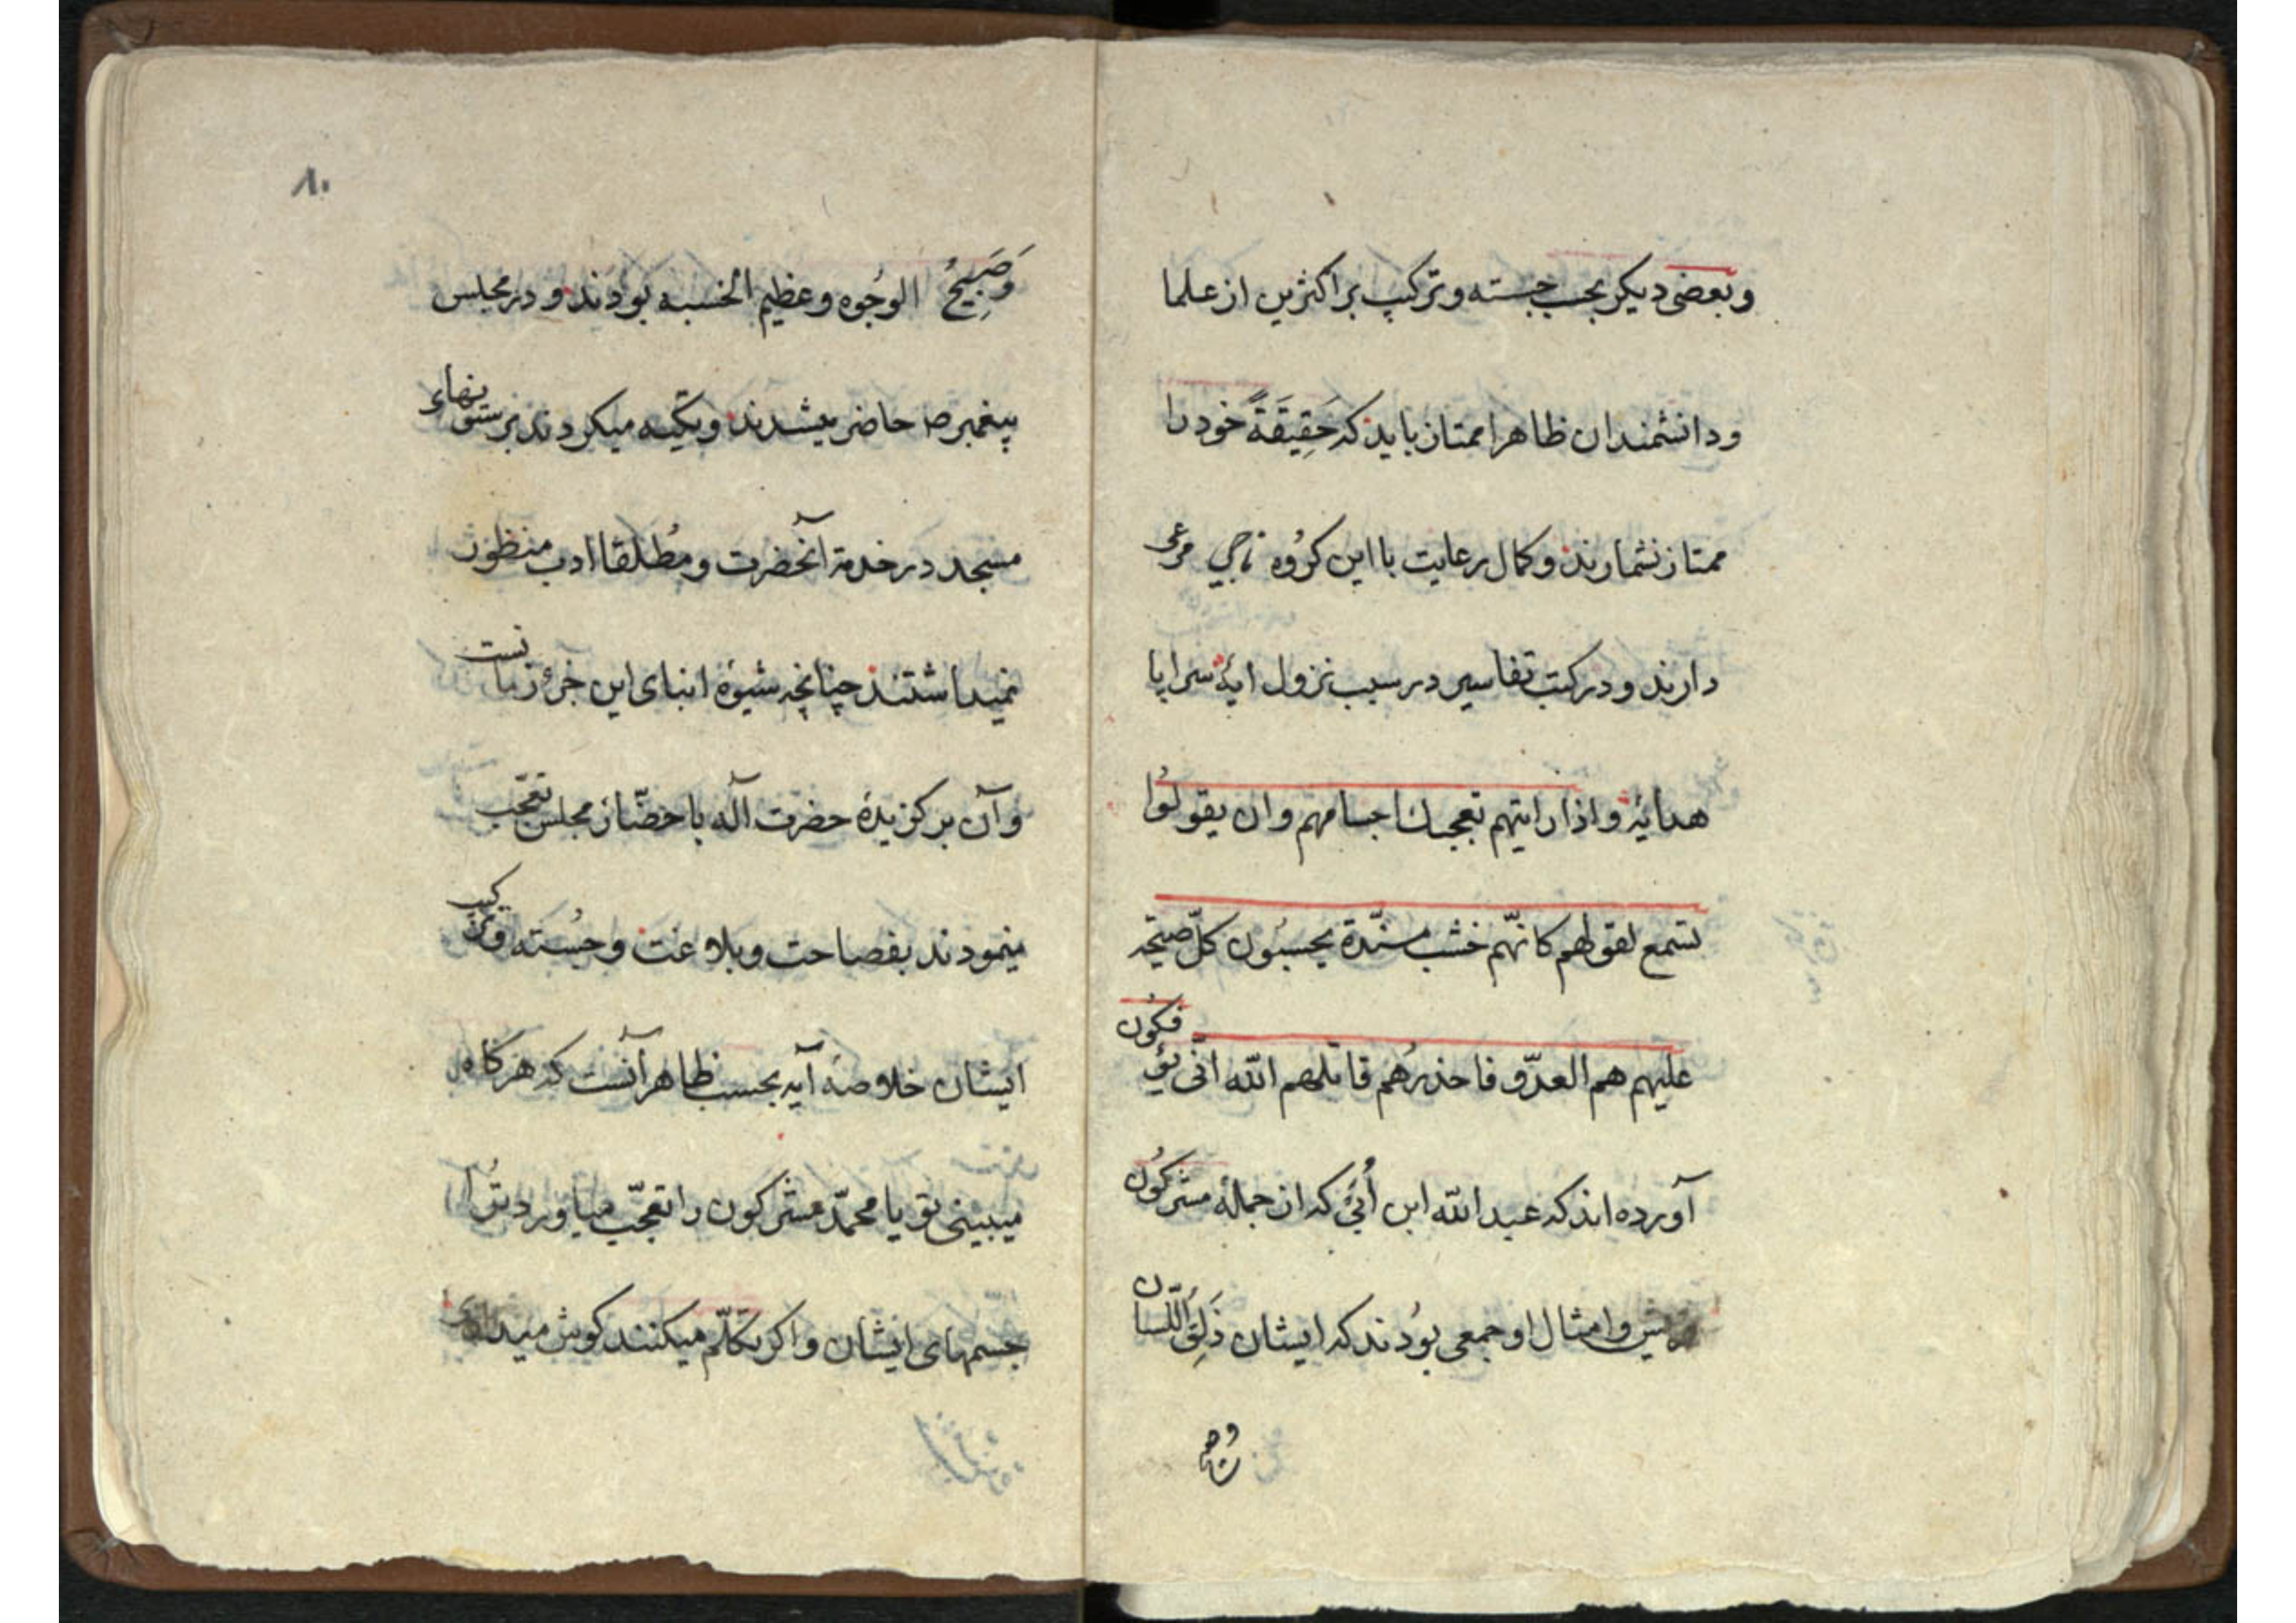 وبعضی دیکر بحسب جسته وترکیب بر اکثرین از علما
ودانشمندان ظاهرا ممتاز باید که حَقِیقَةً خود را
ممتاز نشمارند و کمال رعایت با این کرُوه ناجی مرعی
دارند و در کتب تفاسیر در سبب نزول ایهٔ سراپا
هدایهٔ واذا رایتهم تعجبك اجسامهم وان یقولُوا
تسمع لقولهم کانّهم خشب مسنّدة یحسبُون کلّ صیحة
علیهم هم العدّو فاحذرُهم قاتلهم اللّه انّی یؤفکوُن
آورده اند که عبد اللّه ابن اُبَیّ که از جملهٔ مشرکوُن
وامثال او جمعی بوُدند که ایشان ذَلِقُ اللّسان
وصبیح
۸۰
وَصَبِیحُ الوجُوه وعظیم الخسبه بودند و در مجلس
پیغمبر ص حاضر میشدند و تکیه میکردند بر ستونهاء
مسجد در خدمة آنحضرت و مُطلقا ادب منظور
نمیداشتند چنانچه شیوهٔ ابنای این جزؤ زمانست
وآن برکزیدهٔ حضرت آله با حضّار مجلس تعجّب
مینمودند بفصاحت وبلاغت و جُسته وترکیب
ایشان خلاصهٔ آیه بحسب ظاهر آنست که هرکاه
میبینی تو یا محمّد مشرکون را تعجّب میاورد تُرا
جسمهای ایشان واکر تکلّم میکنند کوش میداری